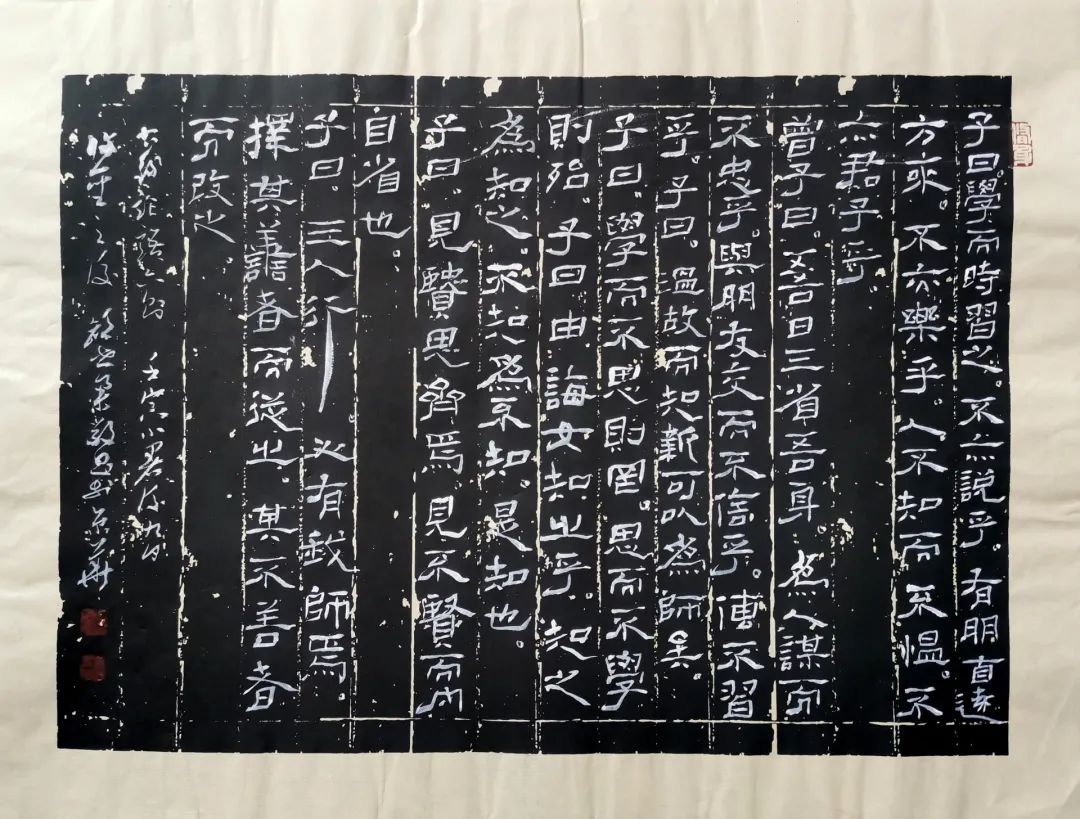 子曰。學而時習之。不亦説乎。有朋自遠
方來。不亦樂乎。人不知而不愠。不
亦君子乎。
曾子曰。吾日三省吾身。爲人謀而
不忠乎。與朋友交而不信乎。傳不習
乎。子曰。温故而知新可以爲師矣。
子曰。學而不思則罔。思而不學
則殆。子曰由誨女知之乎。知之
爲知之。不知爲不知。是知也。
子曰。見賢思齊焉見不賢而內
自省也。
子曰。三人行必有我師焉。
擇其善者而從之。其不善者
而改之。
論語六則 壬寅小暑後九日